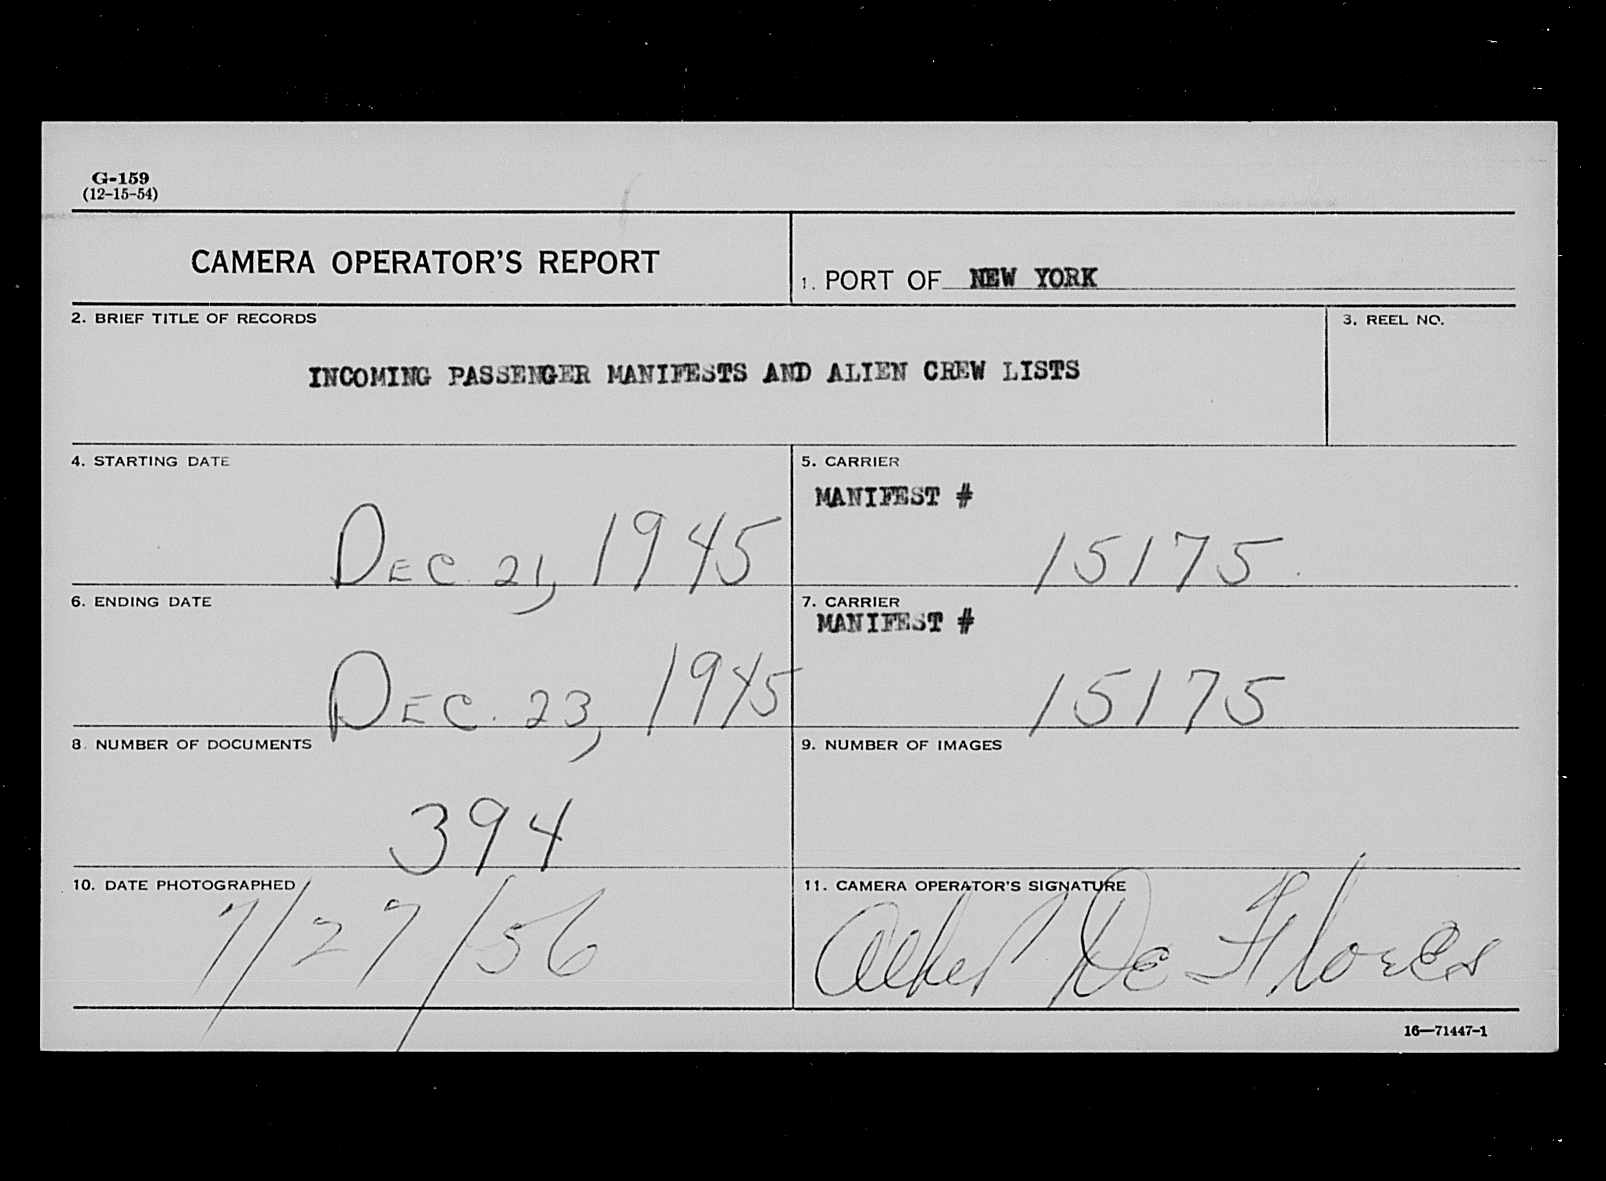 G-159
(12-15-54)
CAMERA OPERATOR'S REPORT
1. PORT OF NEW YORK
2. BRIEF TITLE OF RECORDS
INCOMING PASSENGER MANIFESTS AND ALIEN CREW LISTS
3. REEL NO.
4. STARTING DATE
DEC. 21, 1945
5. CARRIER
MANIFEST #
15175
6. ENDING DATE
DEC. 23, 1945
7. CARRIER
MANIFEST #
15175
8. NUMBER OF DOCUMENTS
394
9. NUMBER OF IMAGES
10. DATE PHOTOGRAPHED
7/27/56
11. CAMERA OPERATOR'S SIGNATURE
De Flores
16—71447-1